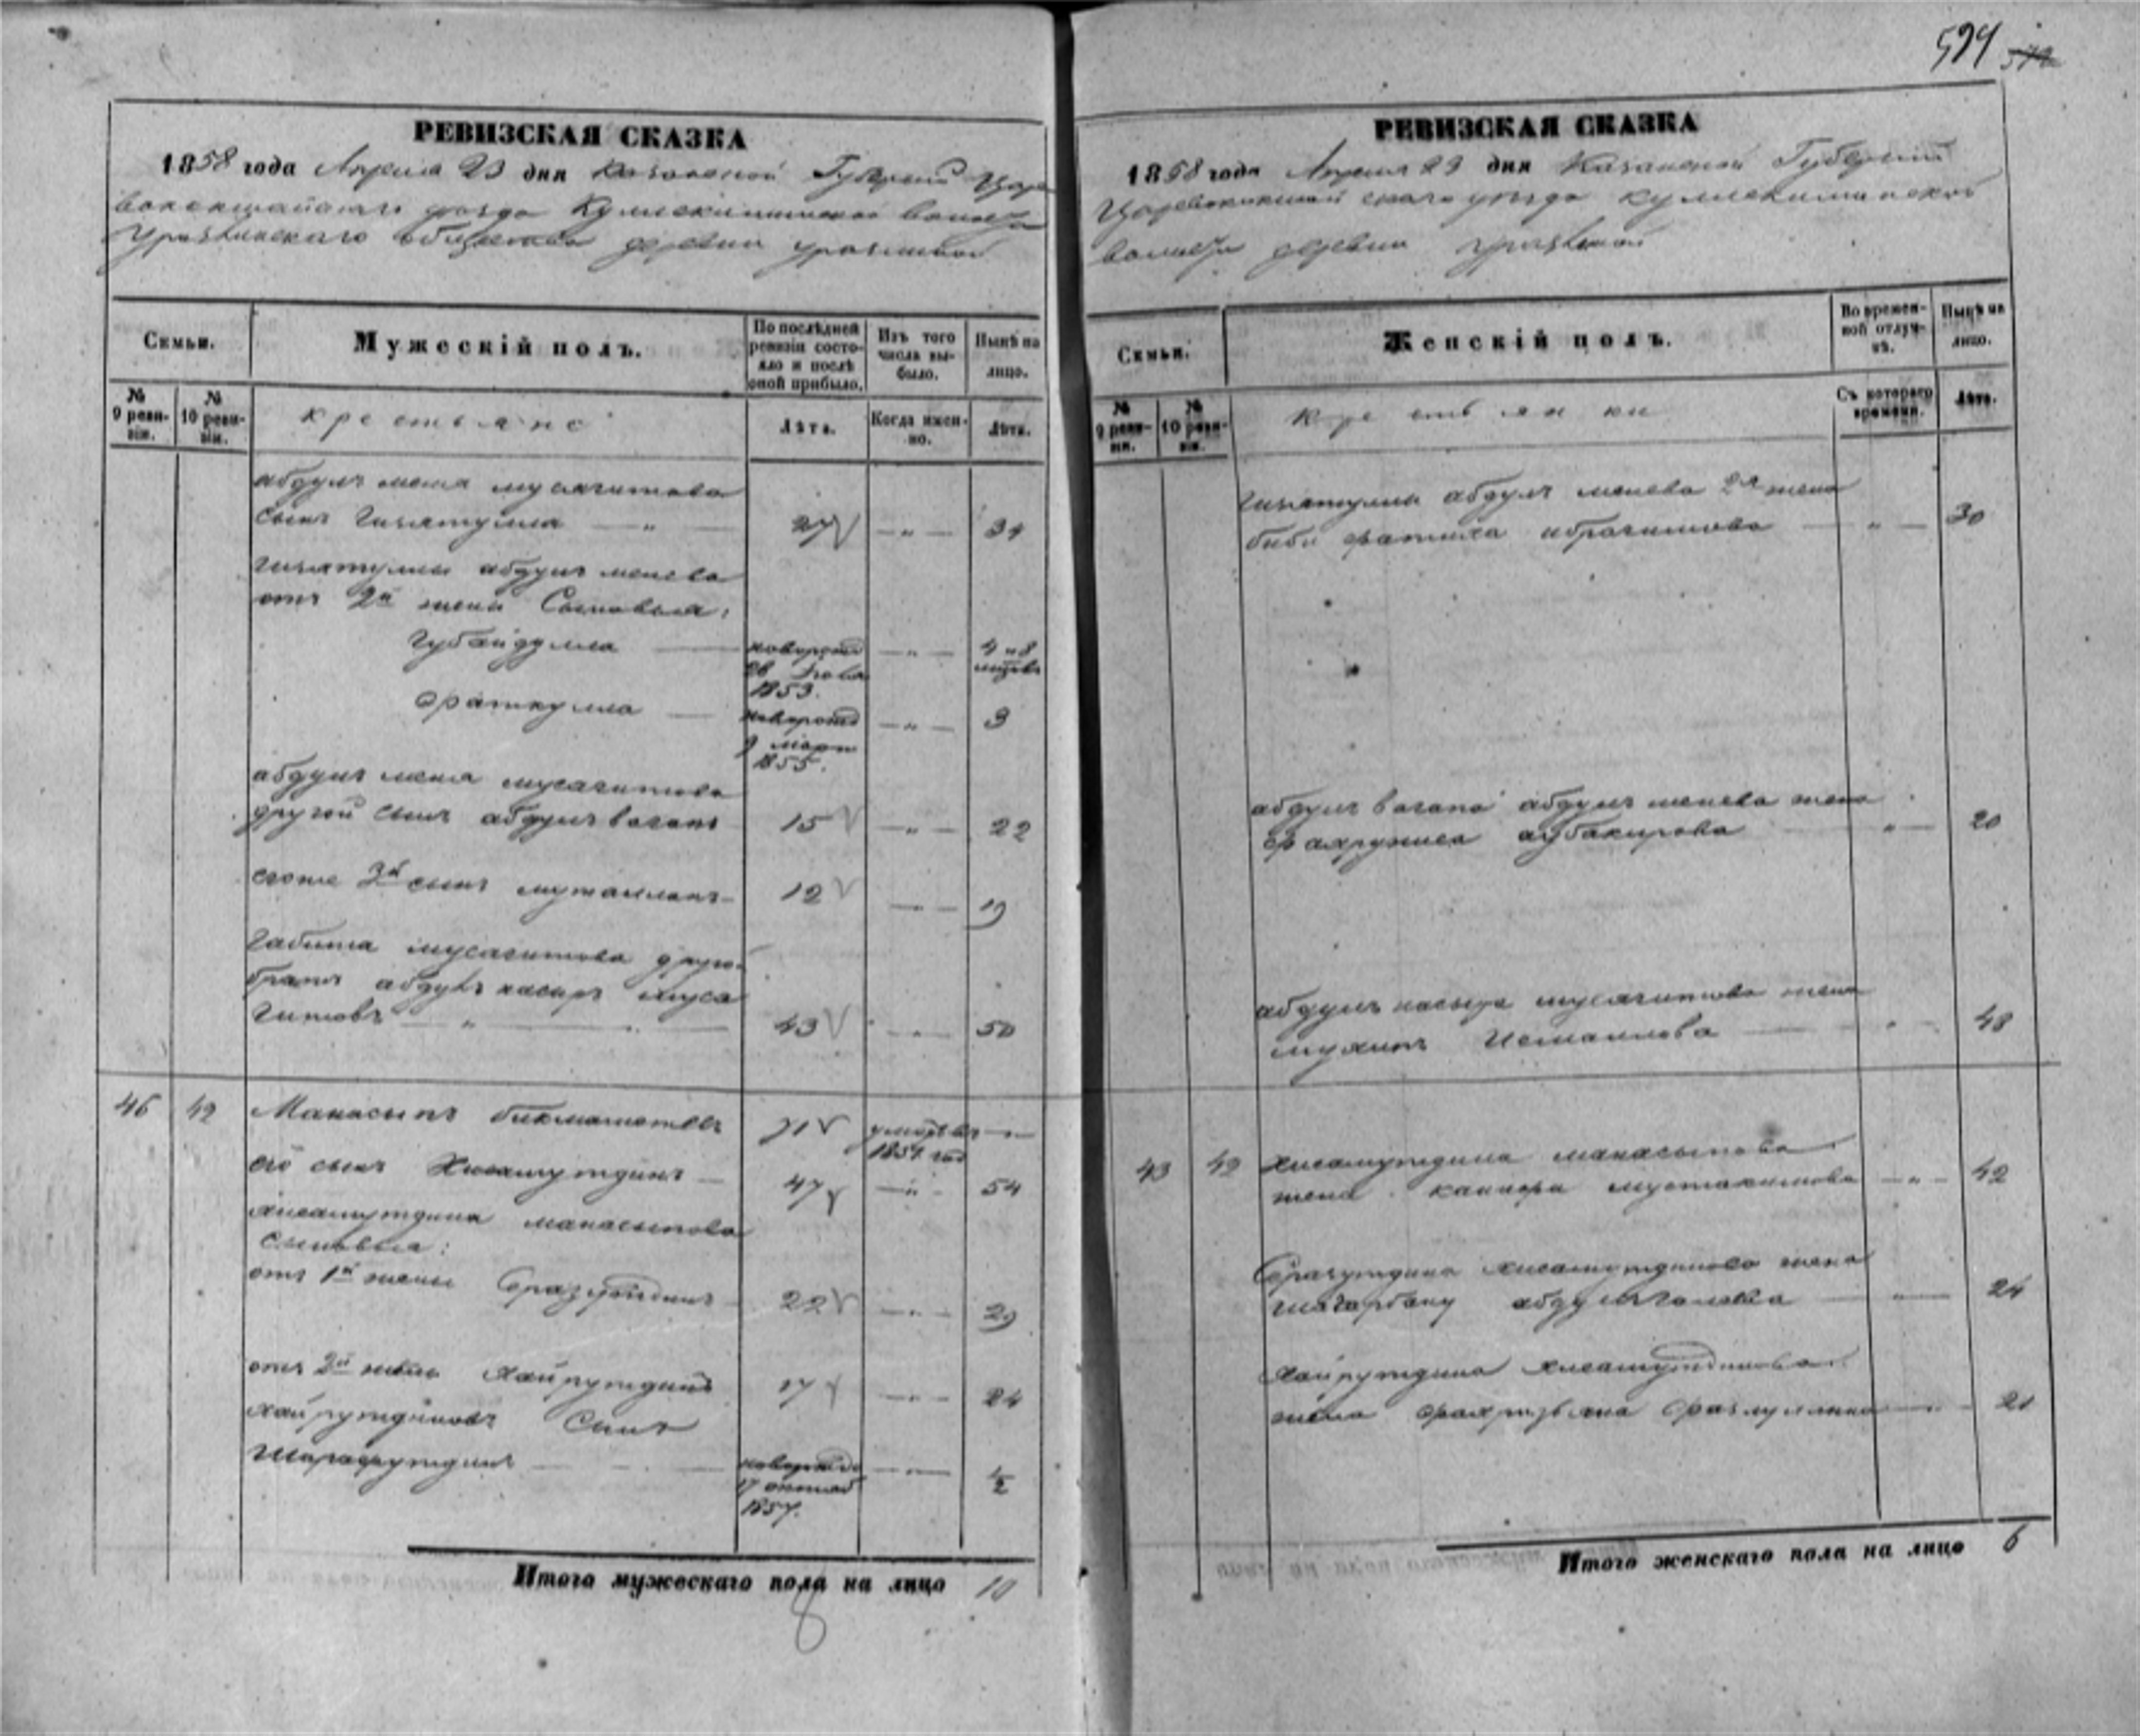 594
РЕВИЗСКАЯ СКАЗКА
1858 года Апреля 23 дня Казанской Губернии Царе
вококшайскаго уезда Кулле Киминской волости
Уразлинскаго общества деревни уразлиной
Семьи.
Мужескій полъ.
По послѣдней ревизіи состояло и послѣ оной прибыло.
Изъ того числа выбыло.
Нынѣ на лицо.
№ 9 ревизіи.
№ 10 ревизіи.
крестьяне
Лѣта.
Когда именно.
Лѣта.
абдулъ меня мусагитова
сынъ Гизятулла — " — 27 — " — 34
Гизятуллы абдулъ менева
отъ 2й жены Сыновья:
Губайдулла — новорожд 1853. — " — 4 и 8 месяцовъ
Фаткулла — новорожд 9 март 1855. — " — 3
абдулъ меня мусагитова
другой сынъ абдулъ вагапъ 15 — " — 22
егоже 3й сынъ муталлапъ 12 — " — 19
Габита мусагитова друго
братъ абдулъ насыръ муса
гитовъ — " — 43 — " — 50
46 42 Манасыпъ бикмаметевъ 71 умеръ въ 1851 год — " —
его сынъ Хисамутдинъ — 47 — " — 54
хисамутдина манасыпова
сыновья:
отъ 1й жены Фразутдинъ 22 — " — 29
отъ 2й жены Хайрутдинъ 17 — " — 24
хайрутдиновъ Сынъ
Шарафутдинъ — новорожд 17 октяб 1857. — " — 1/2
Итого мужескаго пола на лицо 10
8
РЕВИЗСКАЯ СКАЗКА
1858 года Апреля 23 дня Казанской Губернии
Царевококшайскаго уезда Кулле Киминской
волости деревни уразлиной
Семьи.
Женскій полъ.
Во временной отлучкѣ.
Нынѣ на лицо.
№ 9 ревизіи.
№ 10 ревизіи.
крестьянки
Съ котораго времени.
Лѣта.
Гизятуллы абдулъ менева 2я жена
биби фатиха ибрагимова — " — 30
абдулъ вагапа абдулъ менева жена
фахруниса аубакирова — " — 20
абдулъ насыра мусагитова жена
Исмаилова — " — 48
43 42 Хисамутдина манасыпова
жена мустакимова — " — 42
Фразутдина хисамутдинова жена
Шагарбану абдулгалева — " — 24
Хайрутдина хисамутдинова
жена — " — 21
Итого женскаго пола на лицо 6